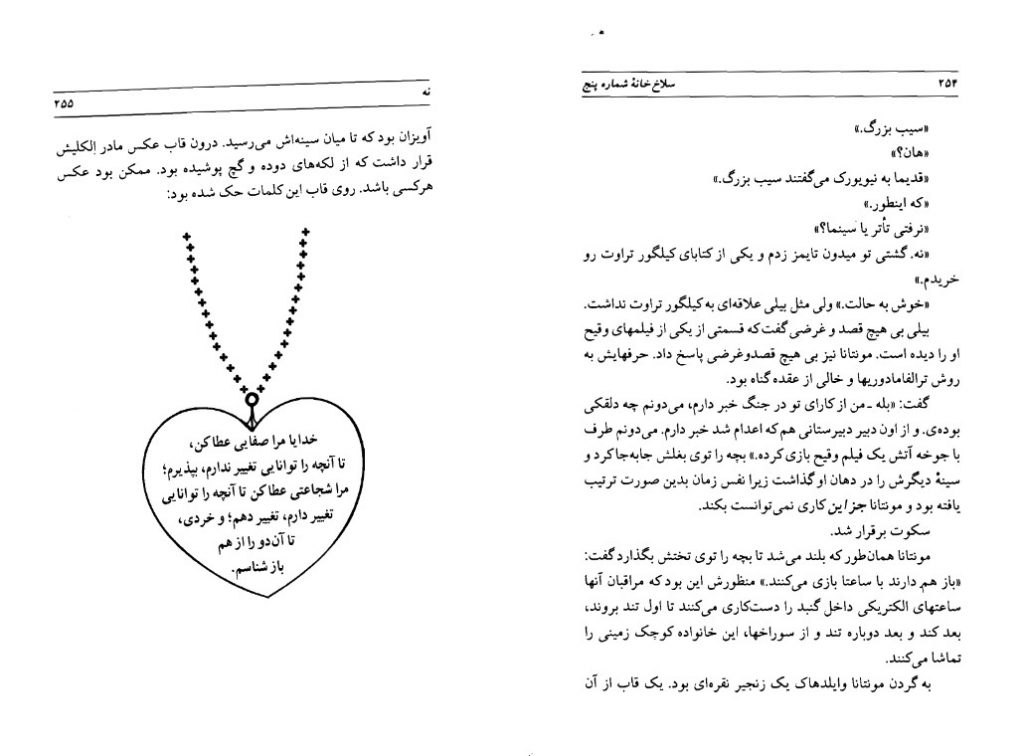 ۲۵۴ سلاخ‌خانهٔ شماره پنج
«سیب بزرگ.»
«هان؟»
«قدیما به نیویورک می‌گفتند سیب بزرگ.»
«که اینطور.»
«نرفتی تأتر یا سینما؟»
«نه. گشتی تو میدون تایمز زدم و یکی از کتابای کیلگور تراوت رو
خریدم.»
«خوش به حالت.» ولی مثل بیلی علاقه‌ای به کیلگور تراوت نداشت.
بیلی بی هیچ قصد و غرضی گفت که قسمتی از یکی از فیلمهای وقیح
او را دیده است. مونتانا نیز بی هیچ قصدوغرضی پاسخ داد. حرفهایش به
روش ترالفامادوریها و خالی از عقده گناه بود.
گفت: «بله ـ من از کارای تو در جنگ خبر دارم، می‌دونم چه دلقکی
بوده‌ی. و از اون دبیر دبیرستانی هم که اعدام شد خبر دارم. می‌دونم طرف
با جوخه آتش یک فیلم وقیح بازی کرده.» بچه را توی بغلش جابه‌جا کرد و
سینهٔ دیگرش را در دهان او گذاشت زیرا نفس زمان بدین صورت ترتیب
یافته بود و مونتانا جز این کاری نمی‌توانست بکند.
سکوت برقرار شد.
مونتانا همان‌طور که بلند می‌شد تا بچه را توی تختش بگذارد گفت:
«باز هم دارند با ساعتا بازی می‌کنند.» منظورش این بود که مراقبان آنها
ساعتهای الکتریکی داخل گنبد را دست‌کاری می‌کنند تا اول تند بروند،
بعد کند و بعد دوباره تند و از سوراخها، این خانواده کوچک زمینی را
تماشا می‌کنند.
به گردن مونتانا وایلدهاک یک زنجیر نقره‌ای بود. یک قاب از آن
نه ۲۵۵
آویزان بود که تا میان سینه‌اش می‌رسید. درون قاب عکس مادر اِلکلیش
قرار داشت که از لکه‌های دوده و گچ پوشیده بود. ممکن بود عکس
هرکسی باشد. روی قاب این کلمات حک شده بود:
خدایا مرا صفایی عطا کن،
تا آنچه را توانایی تغییر ندارم، بپذیرم؛
مرا شجاعتی عطا کن تا آنچه را توانایی
تغییر دارم، تغییر دهم؛ و خردی،
تا آن‌دو را از هم
باز شناسم.